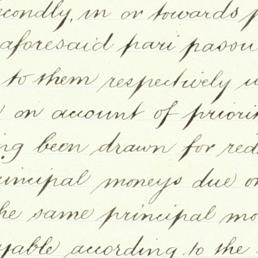 econdly, in or towards p
aforesaid pari passu
to them respectively u
on account of priorit
ng been drawn for red
rincipal moneys due on
he same principal mo
yable according to the